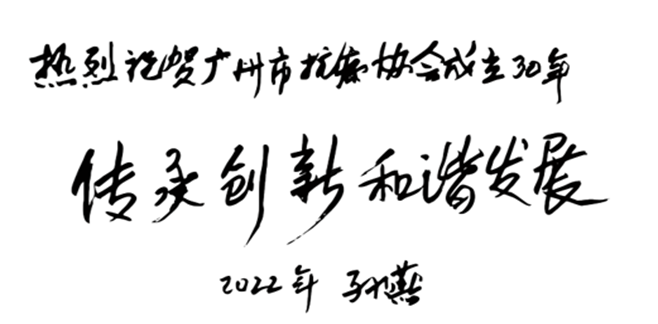 热烈祝贺广州市抗癌协会成立30年
传承创新和谐发展
2022年 孙燕